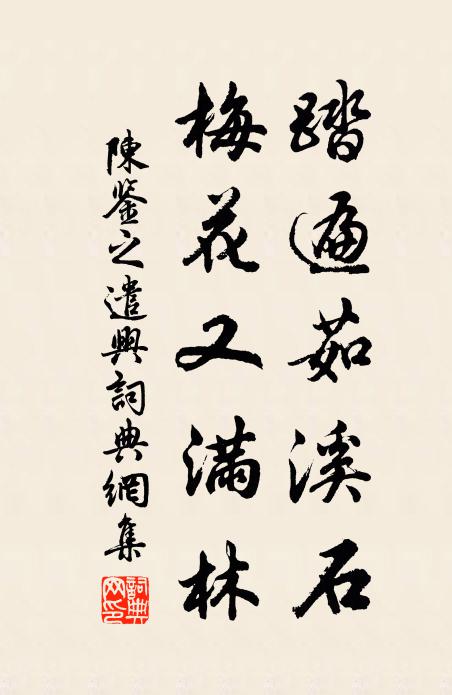 踏遍茹溪石
梅花又滿林
陳鉴之遣興詞典網集
詞典网印